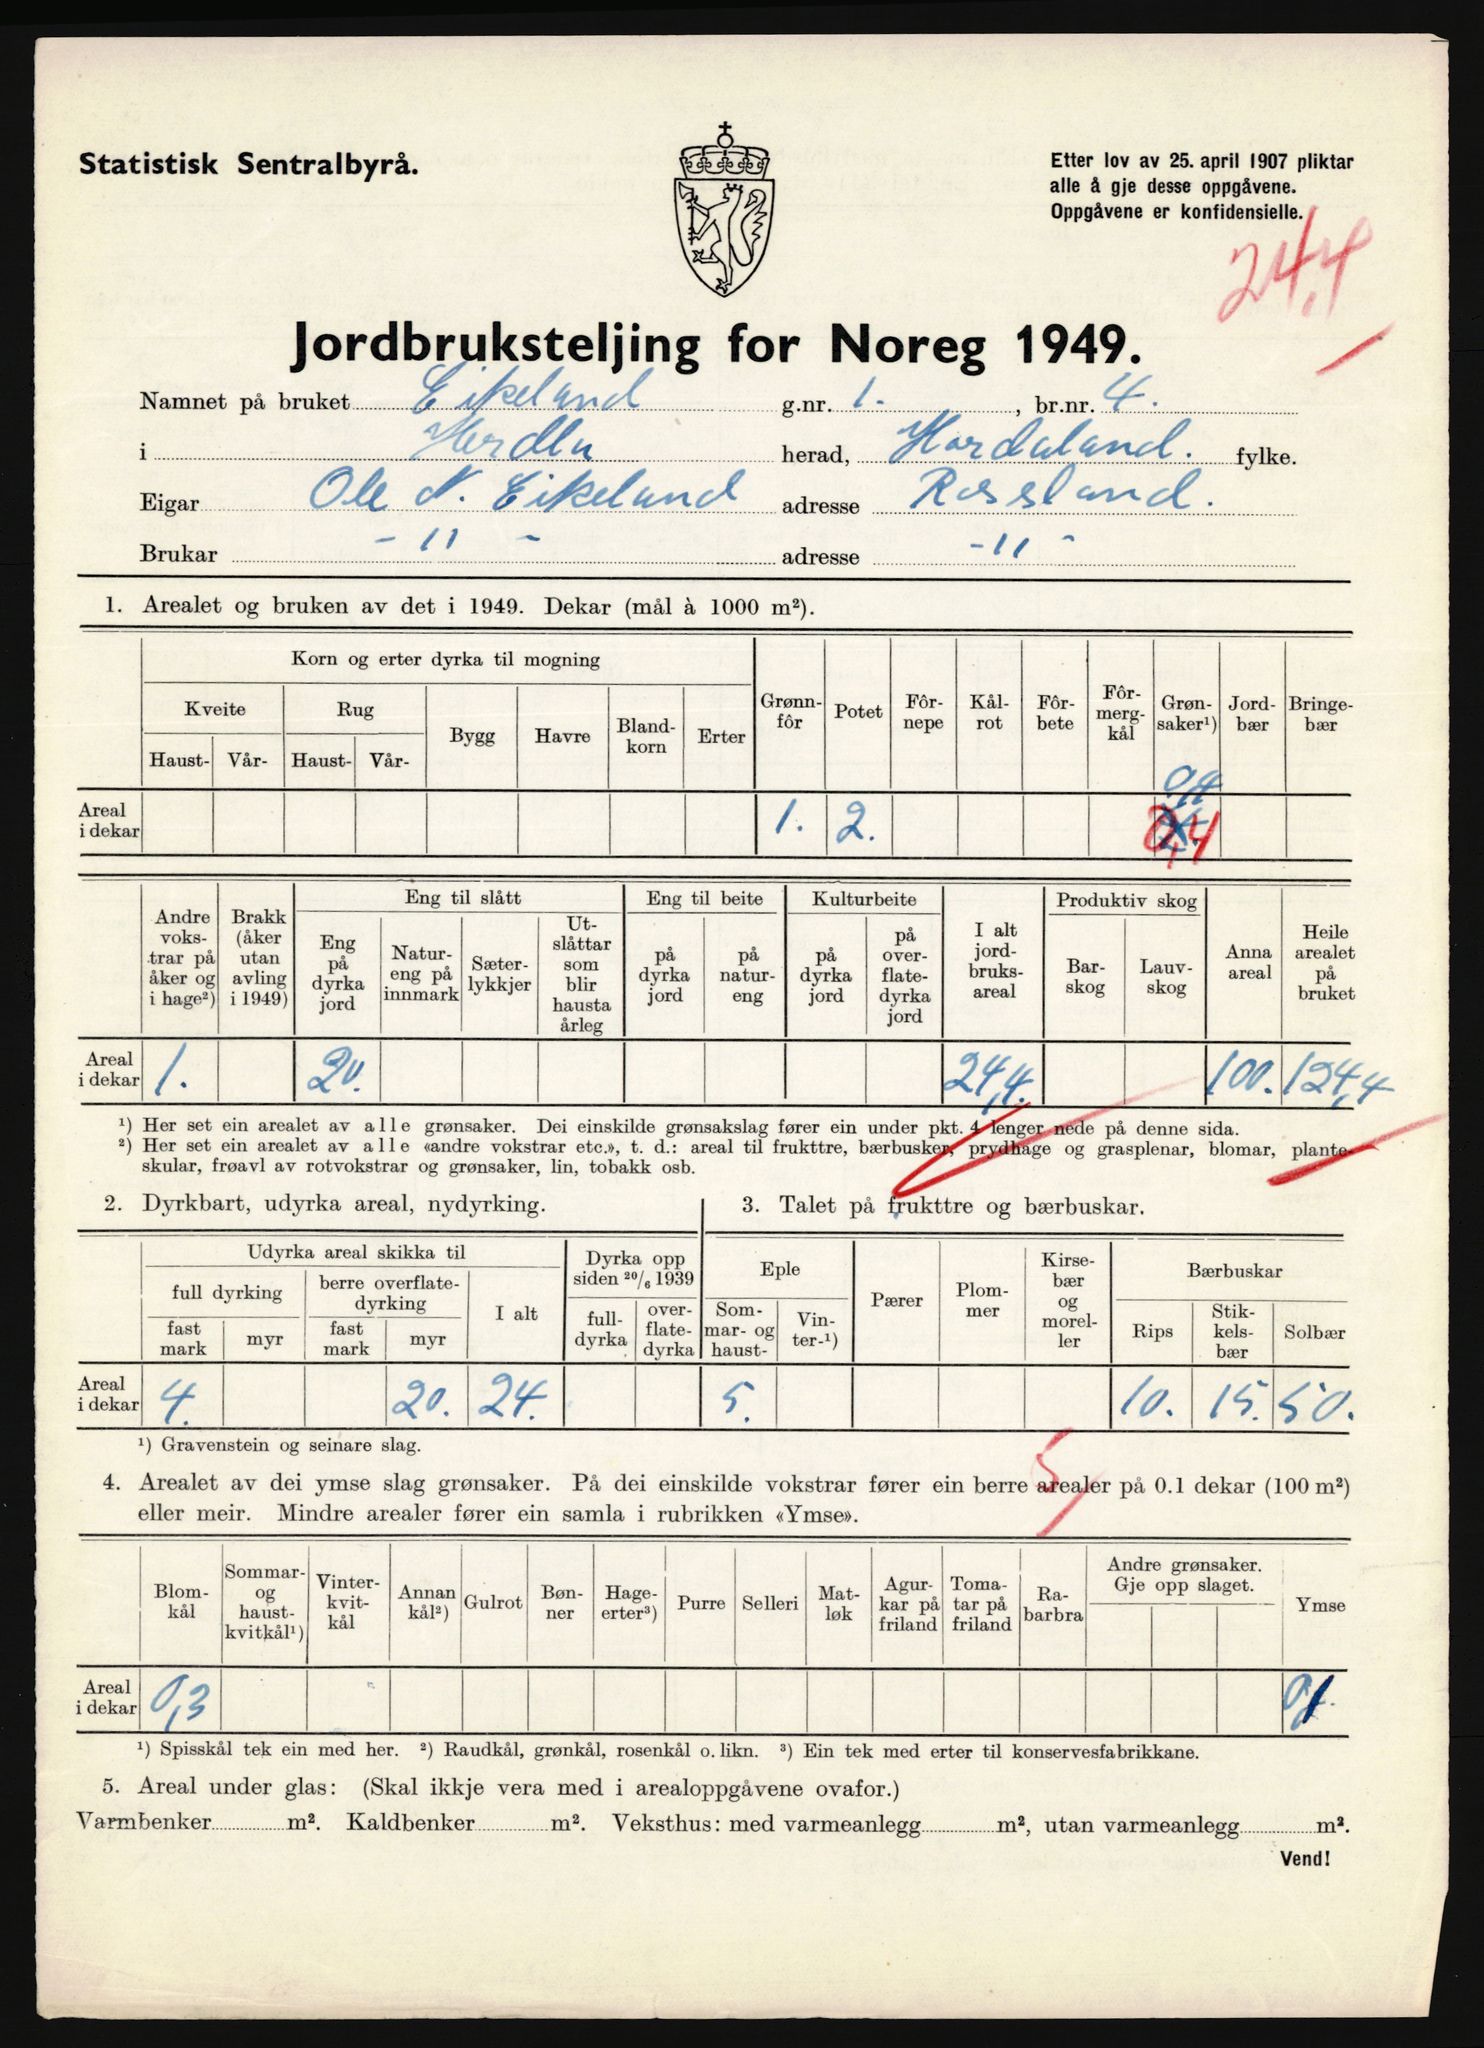 Statistisk Sentralbyrå.
Etter lov av 25. april 1907 pliktar
alle å gje desse oppgåvene.
Oppgåvene er konfidensielle.
24,4
Jordbruksteljing for Noreg 1949.
Namnet på bruket Eikeland g.nr. 1. , br.nr. 4.
i Herdla herad, Hordaland. fylke.
Eigar Ole N. Eikeland adresse Rossland.
Brukar -11- adresse -11-
1. Arealet og bruken av det i 1949. Dekar (mål à 1000 m²).
Korn og erter dyrka til mogning
Kveite Rug Bygg Havre Bland-korn Erter Grønn-fôr Potet Fôr-nepe Kål-rot Fôr-bete Fôr-merg-kål Grøn-saker¹) Jord-bær Bringe-bær
Haust- Vår- Haust- Vår-
0,4
Areal i dekar 1. 2. 0,4
Eng til slått Eng til beite Kulturbeite Produktiv skog
Andre voks-trar på åker og i hage²) Brakk (åker utan avling i 1949) Eng på dyrka jord Natur-eng på innmark Sæter-lykkjer Ut-slåttar som blir hausta årleg på dyrka jord på natur-eng på dyrka jord på over-flate-dyrka jord I alt jord-bruks-areal Bar-skog Lauv-skog Anna areal Heile arealet på bruket
Areal i dekar 1. 20. 24,4. 100. 124,4
¹) Her set ein arealet av alle grønsaker. Dei einskilde grønsakslag fører ein under pkt. 4 lenger nede på denne sida.
²) Her set ein arealet av alle «andre vokstrar etc.», t. d.: areal til frukttre, bærbusker, prydhage og grasplenar, blomar, plante-
skular, frøavl av rotvokstrar og grønsaker, lin, tobakk osb.
2. Dyrkbart, udyrka areal, nydyrking.
3. Talet på frukttre og bærbuskar.
Udyrka areal skikka til Dyrka opp siden ²⁰/₆ 1939 Eple Pærer Plom-mer Kirse-bær og morel-ler Bærbuskar
full dyrking berre overflate-dyrking I alt full-dyrka over-flate-dyrka Som-mar- og haust- Vin-ter-¹) Rips Stik-kels-bær Solbær
fast mark myr fast mark myr
Areal i dekar 4. 20. 24. 5. 10. 15. 50.
¹) Gravenstein og seinare slag.
5
4. Arealet av dei ymse slag grønsaker. På dei einskilde vokstrar fører ein berre arealer på 0.1 dekar (100 m²)
eller meir. Mindre arealer fører ein samla i rubrikken «Ymse».
Blom-kål Sommar- og haust-kvitkål¹) Vinter-kvit-kål Annan kål²) Gulrot Bøn-ner Hage-erter³) Purre Selleri Mat-løk Agur-kar på friland Toma-tar på friland Ra-barbra Andre grønsaker. Gje opp slaget. Ymse
Areal i dekar 0,3 0,1
¹) Spisskål tek ein med her. ²) Raudkål, grønkål, rosenkål o. likn. ³) Ein tek med erter til konservesfabrikkane.
5. Areal under glas: (Skal ikkje vera med i arealoppgåvene ovafor.)
Varmbenker m². Kaldbenker m². Veksthus: med varmeanlegg m², utan varmeanlegg m².
Vend!